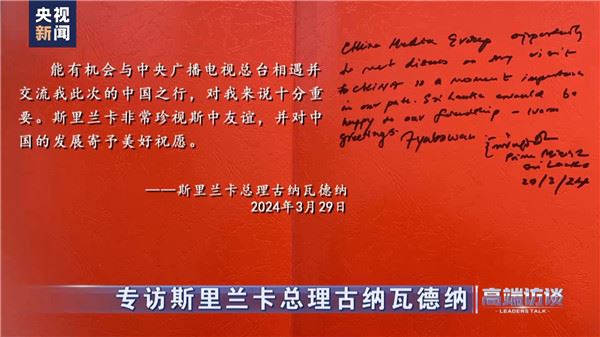 央视
新闻
能有机会与中央广播电视总台相遇并
交流我此次的中国之行，对我来说十分重
要。斯里兰卡非常珍视斯中友谊，并对中
国的发展寄予美好祝愿。
——斯里兰卡总理古纳瓦德纳
2024年3月29日
China Media Group opportunity
to meet discuss on my visit
to CHINA is a moment importance
in our path. Sri Lanka would be
happy on our friendship – warm
greetings. Ayubowan
Prime Minister
Sri Lanka
专访斯里兰卡总理古纳瓦德纳
高端访谈
LEADERS TALK